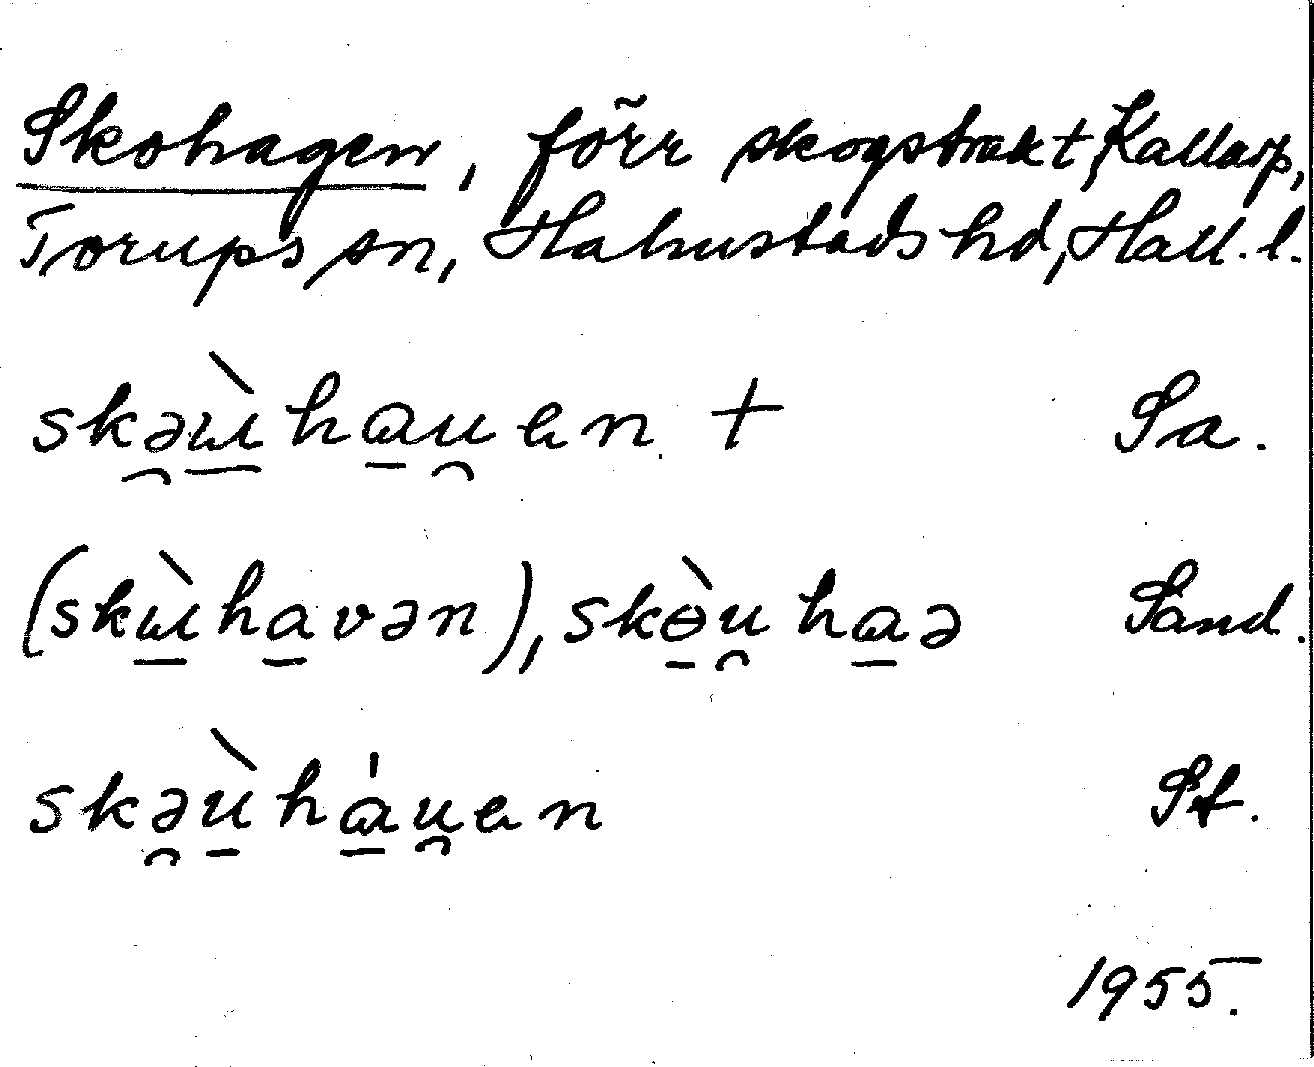 Skohagen, förr skogstrakt, Kallarp,
Torups sn, Halmstads hd, Hall. l.
skə̯ɯ̠̀ha̠u̯en + Sa.
(skɯ̠̀ha̠vən), skɵ̠̀u̯ha̠ə Sand.
skə̯ù̠há̠u̯en St.
1955.